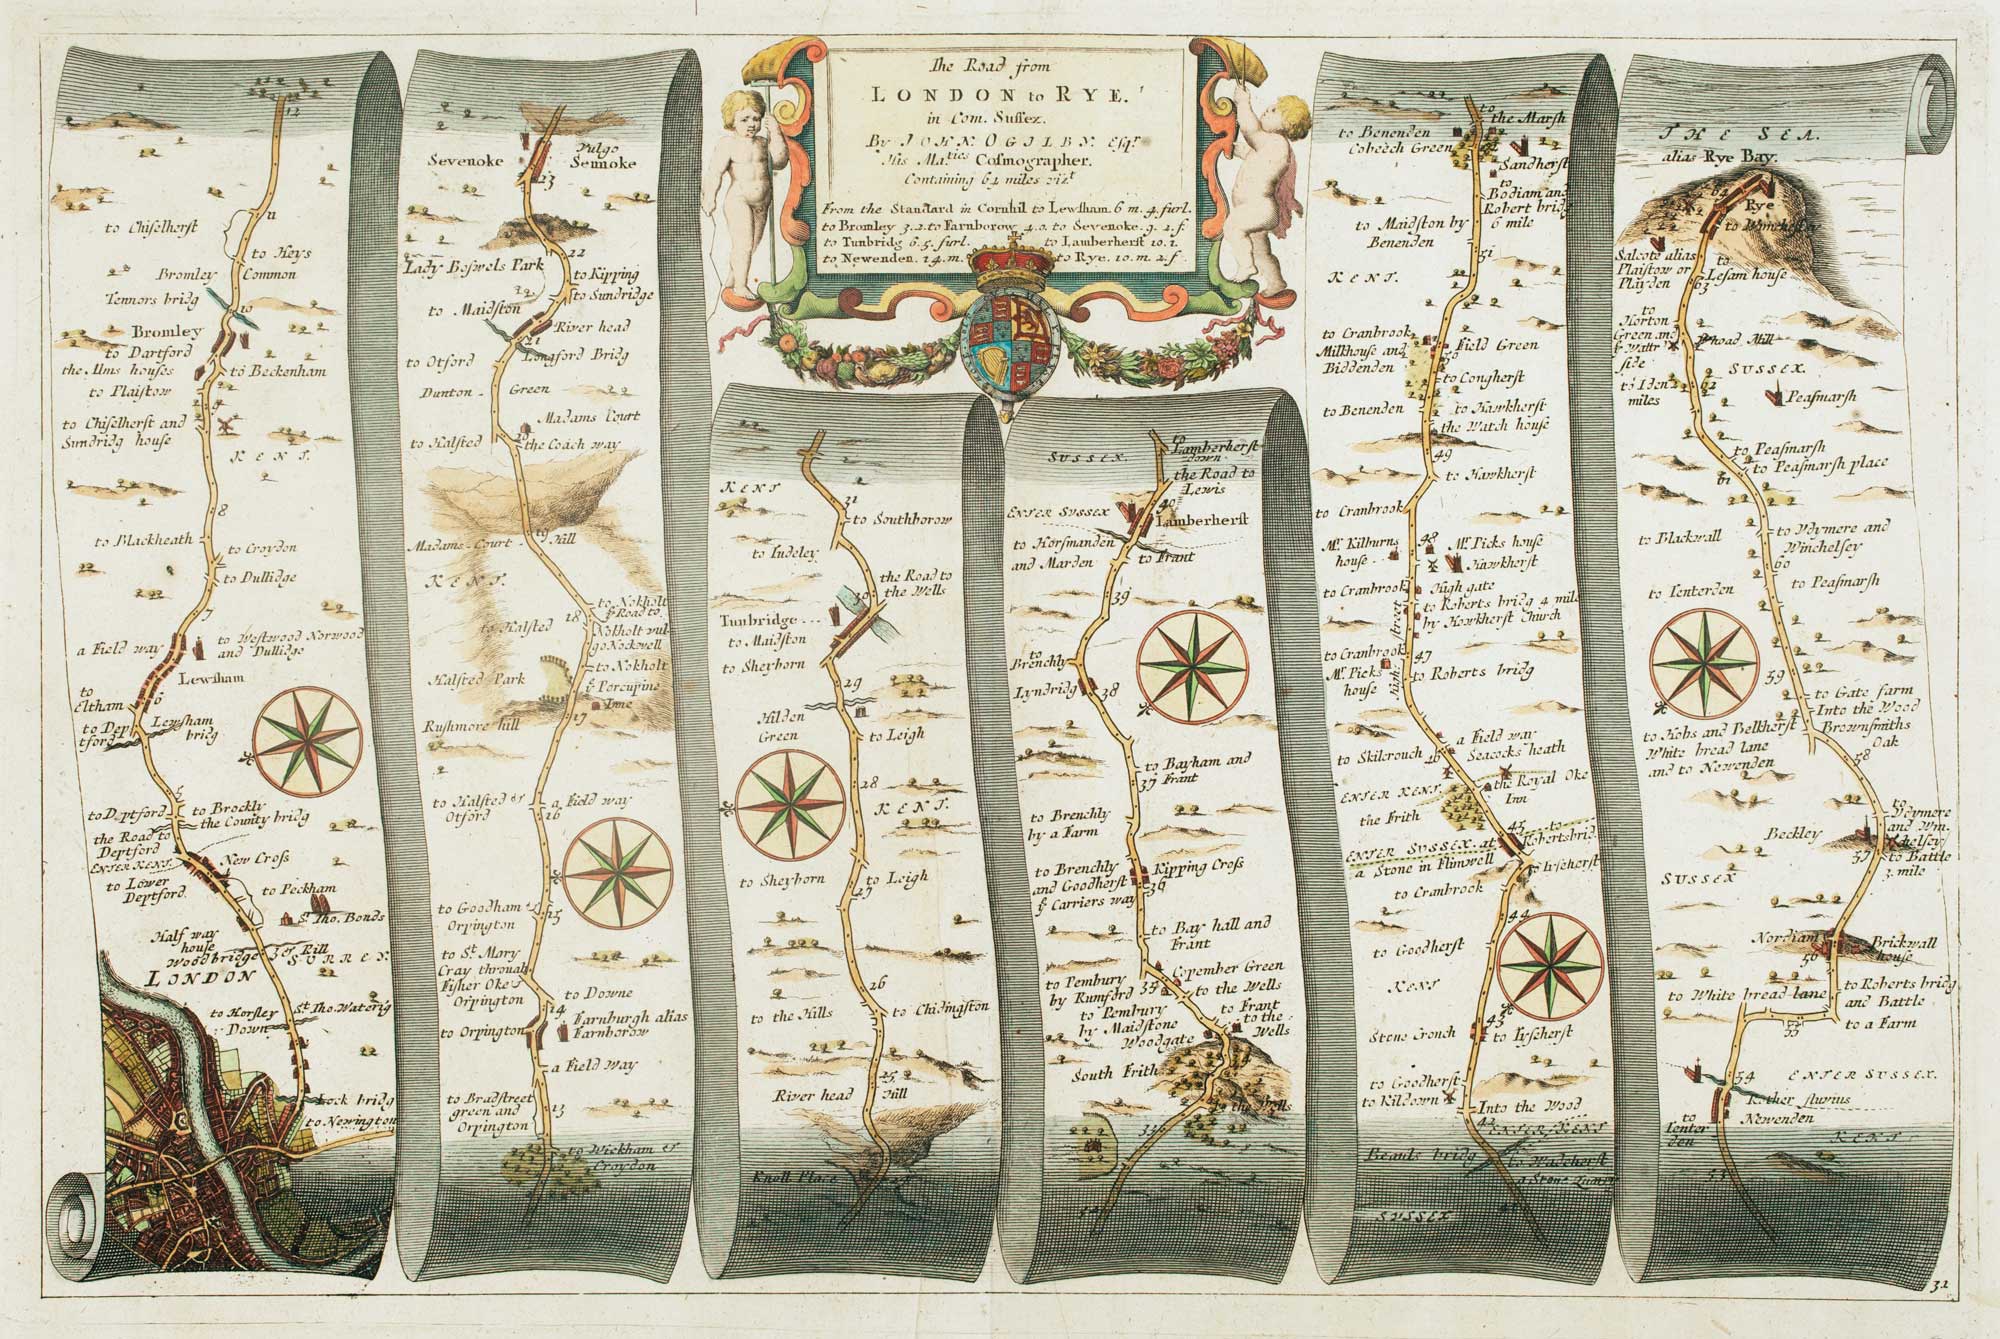 The Road from
LONDON to RYE.
in Com. Sussex.
By IOHN OGILBY Esqr.
His Maties Cosmographer.
Containing 64 miles vizt
From the Standard in Cornhil to Lewsham. 6 m. 4. furl.
to Bromley 3.2. to Farnborow 4.0. to Sevenoke. 9. 2. f.
to Tunbridg 6 5. furl. to Lamberherst 10. 1.
to Newenden. 14. m. to Rye. 10. m. 2. f.
12
11
to Chiselherst
to Heys
Common
Bromley
Tennors bridg
10
Bromley
to Dartford
the Ulms houses
to Beckenham
to Plaistow
9
to Chiselherst and
Sundridg house
KENT.
8
to Blackheath
to Croydon
to Dullidge
7
a Field way
to Westwood Norwood
and Dullidge
Lewsham
6
to
Eltham
to Dep
tford
Lewsham
bridg
5
to Deptford
to Brockly
the County bridg
the Road to
Deptford
ENTER KENT.
New Cross
to Lower
Deptford.
to Peckham
St. Tho. Bonds
Half way
house
Woodbridge & Rill
SURREY.
LONDON
to Horsley
Down
St. Tho. Waterig
Lock bridg
to Newington
Sevenoke
Vulgo
Sennoke
23
22
Lady Boswels Park
to Kipping
to Sundridge
to Maidston
River head
21
Longford Bridg
to Otford
Dunton - Green
Madams Court
to Halsted
the Coach way
19
Madams - Court - Hill
KENT.
to Nokholt
ye Road to
Nokholt vul-
go Nockwell
18
to Halsted
to Nokholt
Halsted Park
ye Porcupine
Inne
17
Rushmore hill
to Halsted or
Otford
a Field way
16
to Goodham
Orpington
15
to St. Mary
Cray through
Fisher Oke &
Orpington
to Downe
14
to Orpington
Farnburgh alias
Farnborow
a Field Way
to Bradstreet
green and
Orpington
13
to Wickham &
Croydon
KENT
31
to Southborow
to Tudeley
the Road to
the Wells
30
Tunbridge...
to Maidston
to Sheyborn
29
Hilden
Green
to Leigh
28
KENT.
to Sheyborn
to Leigh
27
26
to the Hills
to Chidingston
25
River head Hill
Knoll Place
SUSSEX.
Lamberherst
down
the Road to
Lewis
40
ENTER SUSSEX
Lamberherst
to Horsmanden
and Marden
to Frant
39
to
Brenchly
Lyndridg
38
to Bayham and
Frant
37
to Brenchly
by a Farm
to Brenchly
and Goodherst
ye Carriers way
Kipping Cross
36
to Bay hall and
Frant
to Pembury
by Rumford
Copember Green
35
to the Wells
to Pembury
by Maidstone
to Frant
to the
Wells
Woodgate
South Frith
to the Wells
33
32
to
the Marsh
to Benenden
Cobeech Green
Sandherst
to
Bodiam and
Robert bridg
6 mile
to Maidston by
Benenden
51
KENT.
to Cranbrook
Milkhouse and
Biddenden
Field Green
50
to Congherst
to Benenden
to Hawkherst
the Watch house
49
to Hawkherst
to Cranbrook
Mr. Kilburns
house
48
Mr. Picks house
Hawkherst
to Cranbrook
High gate
to Roberts bridg 4 mile
by Hawkherst Church
High street
to Cranbrook
47
Mr. Picks
house
to Roberts bridg
a Field way
to Skilcrouch
46
Seacocks heath
ENTER KENT.
the Royal Oke
Inn
the Frith
45
to
Robertsbrid.
ENTER SUSSEX. at
a Stone in Flimwell
to Ticeherst
to Cranbrook
44
to Goodherst
KENT
Stone Crouch
43
to Tyseherst
to Goodherst
to Kildown
Into the Wood
42
ENTER KENT
Beauls bridg
to Wadcherst
a Stone Quarry
41
SUSSEX
THE SEA.
alias Rye Bay.
64
Rye
to Winchelsey
Salcote alias
Plaistow or
Playden
to
Lesam house
63
to
Horton
Green and
ye Water
side
Rhoad Mill
SUSSEX.
to Iden 2
miles
62
Peasmarsh
to Peasmarsh
to Peasmarsh place
61
to Blackwall
to Wymere and
Winchelsey
60
to Peasmarsh
to Tenterden
59
to Gate farm
Into the Wood
to Hobs and Belkherst
Brownsmiths
Oak
White bread lane
and to Newenden
58
to
Wymere
and Win-
chelsey
Beckley
57
to Battle
3. mile
SUSSEX
Nordiam
56
Brickwall
house
to White bread lane
to Roberts bridg
and Battle
to a Farm
55
54
ENTER SUSSEX.
Rother fluvius
Newenden
to
Tenter
den
KENT
53
31